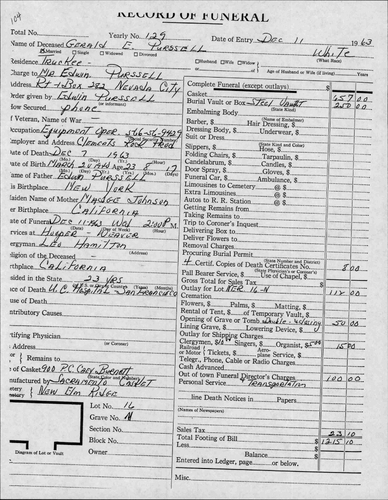 104
RECORD OF FUNERAL
Total No.
Yearly No. 129
Date of Entry Dec 11 1963
Name of Deceased Gerald E. Purssell White
Married Single Widowed Divorced
Residence Truckee
Age of Husband or Wife (if living) Years
Charge to Mr Edwin Purssell
Address Rt 1 Box 282 Nevada City
Order given by Edwin Purssell
How Secured phone
If Veteran, Name of War
Occupation Equipment Oper.
Employer and Address Clements
Date of Death Dec 7 1963
Name of Father Edwin Purssell
His Birthplace New York
Maiden Name of Mother Madge Johnson
Her Birthplace California
Date of Funeral Dec 11-1963 Wed 2:00 P.M.
Services at Hooper-Weaver
Clergyman Leo Hamilton
Religion of the Deceased
Birthplace California
Resided in the State 23 yrs
Place of Death U.C. Hospital San Francisco
Cause of Death
Contributory Causes
Certifying Physician
His Address
Remains to
Size of Casket
Manufactured by Sacramento Casket
Cemetery New Elm Ridge
Lot No. 16
Grave No. N
Section No.
Block No.
Owner
Diagram of Lot or Vault
Complete Funeral (except outlays) $
Casket 657 00
Burial Vault or Box Steel Vault 250 00
Embalming Body
Barber, $ Hair Dressing, $
Dressing Body, $ Underwear, $
Suit or Dress
Slippers, $ Hose, $
Folding Chairs, $ Tarpaulin, $
Candelabrum, $ Candles, $
Door Spray, $ Gloves, $
Funeral Car, $ Ambulance, $
Limousines to Cemetery @ $
Extra Limousines @ $
Autos to R. R. Station @ $
Taking Remains to
Taking Remains from
Trip to Coroner's Inquest
Delivering Box to
Deliver Flowers to
Removal Charges
Procuring Burial Permit
4 Certif. Copies of Death Certificates 8 00
Pall Bearer Service, $ Use of Chapel, $
Gross Total for Sales Tax
Outlay for Lot 112 00
Cremation
Flowers, $ Palms, $ Matting, $
Rental of Tent, $ of Temporary Vault, $
Opening of Grave or Tomb 50 00
Lining Grave, $ Lowering Device, $
Outlay for Shipping Charges
Clergymen, $ Singers, $ Organist, $ 15 00
Railroad or Motor Tickets, $ Aeroplane Service, $
Telegr., Phone, Cable or Radio Charges
Cash Advanced
Out of town Funeral Director's Charges
Personal Service Transportation 100 00
line Death Notices in Papers
(Names of Newspapers)
Sales Tax 23 10
Total Footing of Bill $ 1215 10
Less
Balance
Entered into Ledger, page or below.
Misc.